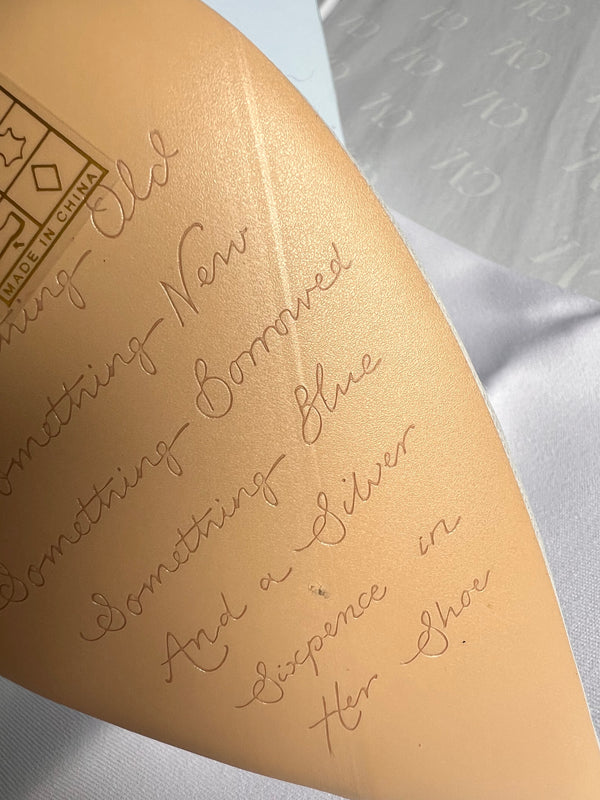 MADE IN CHINA
ning Old
omething New
Something Borrowed
Something Blue
And a Silver
Sixpence in
Her Shoe